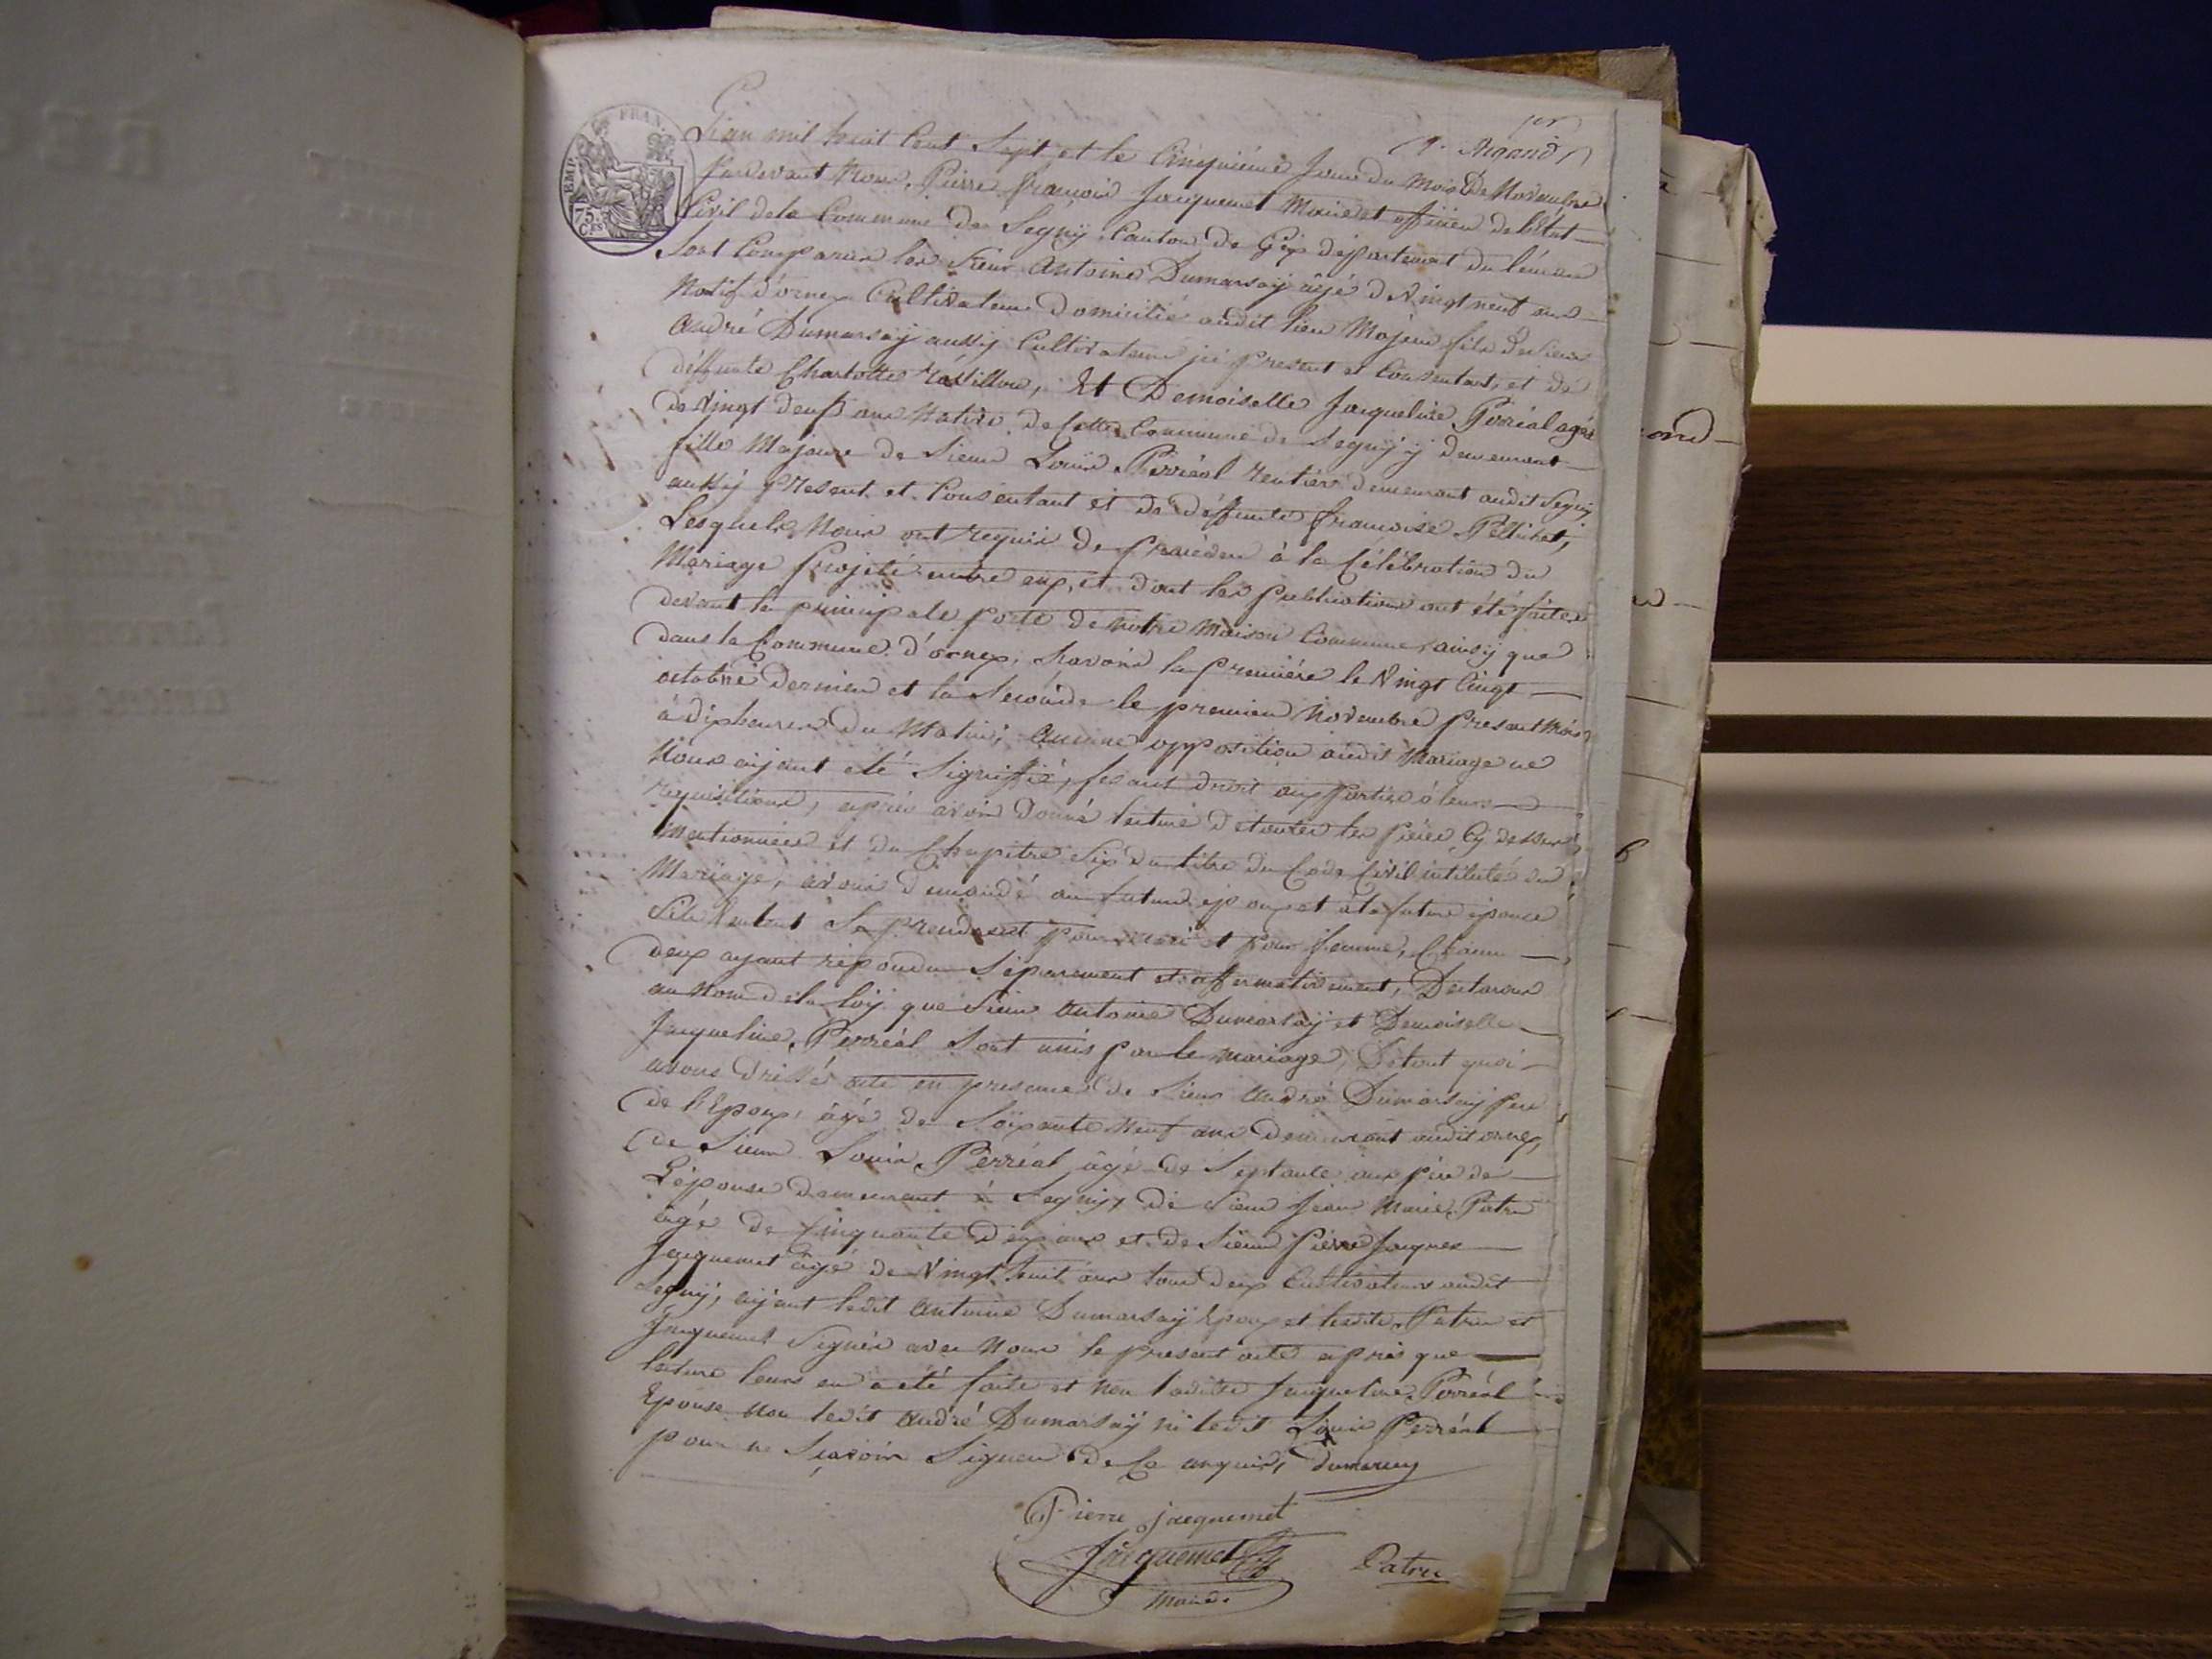 1er
Girand
EMP. FRAN.
75 Ces
L'an mil huit Cent Sept et le Cinquiéme Jour du mois de Novembre
Pardevant Nous, Pierre françois Jacquemet Maire et officier de l'Etat
Civil de la Commune de Segnÿ, Canton de Gex département du léman
Sont Comparus les Sieur Antoine Dumarsaÿ âgé de Vingt neuf ans
Natif d'ornex Cultivateur domicilié audit lieu Majeur fils de Sieur
André Dumarsaÿ aussÿ Cultivateur ici présent et Consentant, et de
déffunte Charlotte, Et Demoiselle Jacqueline Perréal agée
de Vingt deux ans Native de Cette Commune de Segnÿ ÿ demeurant
fille Majeure de Sieur Louis Perréal rentier demeurant audit Segnÿ
aussÿ present et Consentant et de déffunte françoise Pellichet,
Lesquels Nous ont requis de procéder à la Célébration du
Mariage projeté entre eux, et dont les publications ont été faites
devant la principale porte de notre Maison Commune, ainsÿ que
dans la Commune d'ornex, Savoir la premiére le Vingt Cinq
octobre dernier et la Seconde le premier Novembre present Mois
à dix heures du Matin; Aucune opposition audit Mariage ne
Nous aÿant eté Signiffié, fesant droit aux parties à leurs
requisitions, aprés avoir donné lecture de toutes les piéces Cy dessus
Mentionnées et du Chapitre Six du titre du Code Civil intitulé du
Mariage, avons demandé au futur epoux et à la future épouse
S'ils Veulent Se prendre pour mari et pour femme, Chacun
deux ayant répondu Séparement et affermativement, Declarons
au Nom de la loÿ que Sieur Antoine Dumarsaÿ et Demoiselle
Jacqueline Perréal Sont unis par le mariage, De tout quoi
avons dressé acte en presence de Sieur André Dumarsaÿ pere
de l'Epoux, âgé de Soixante Neuf ans demeurant audit ornex,
de Sieur Louis Perréal, âgé de Septante ans pére de
L'épouse demeurant à Segnÿ, de Sieur Jean Marie Patru
âgé de Cinquante deux ans et de Sieur Piérre Jacques
Jacquemet âgé de Vingt huit ans tous deux Cultivateurs audit
Segnÿ, aÿant ledit Antoine Dumarsaÿ Epoux et lesdits Patru et
Jacquemet Signés avec Nous le present acte aprés que
lecture leurs en a eté faite et non ladite Jacqueline Perréal
Epouse non ledit André Dumarsaÿ ni ledit Louis Perréal
pour ne Scavoir Signer de Ce enquis, Dumarcey
Pierre Jacquemet
Jacquemet
Patru
Maire